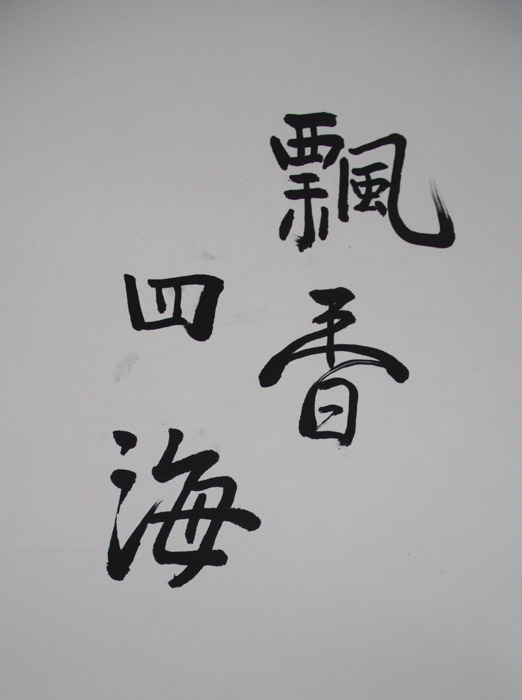 飄香
四海